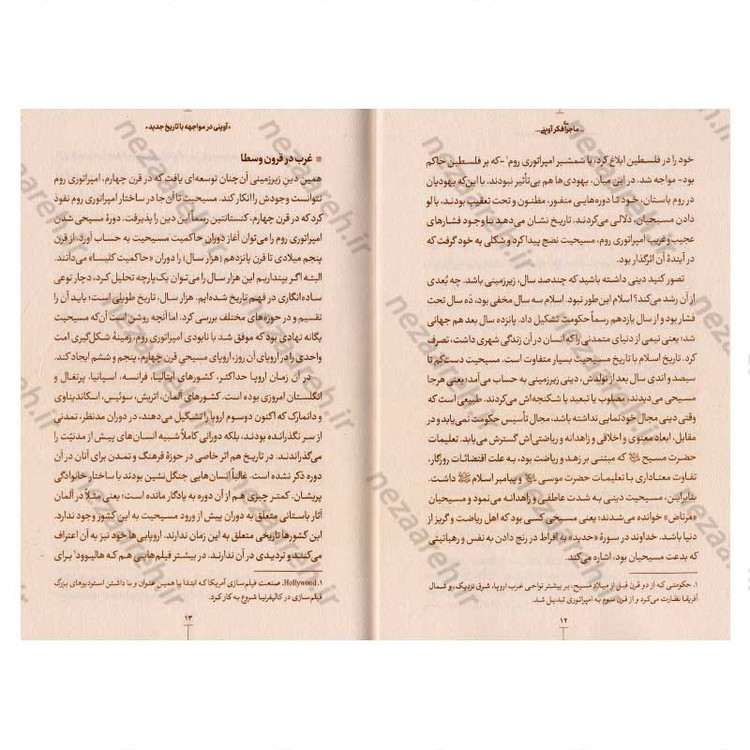 ... ماجرای فکر آوینی...
خود را در فلسطین ابلاغ کرد، با شمشیر امپراتوری روم۱ -که بر فلسطین حاکم
بود- مواجه شد. در این میان، یهودی‌ها هم بی‌تأثیر نبودند. با این‌که یهودیان
در روم باستان، خود تا دوره‌هایی منفور، مظنون و تحت تعقیب بودند، با لو
دادن مسیحیان، دلالی می‌کردند. تاریخ نشان می‌دهد با وجود فشارهای
عجیب و غریب امپراتوری روم، مسیحیت نضج پیدا کرد و شکلی به خود گرفت که
در آیندهٔ آن اثرگذار بود.
تصور کنید دینی داشته باشید که چندصد سال، زیرزمینی باشد. چه بُعدی
از آن رشد می‌کند؟ اسلام این‌طور نبود. اسلام سه سال مخفی بود، دَه سال تحت
فشار بود و از سال یازدهم رسماً حکومت تشکیل داد. پانزده سال بعد هم جهانی
شد؛ یعنی نیمی از دنیای متمدنی را که انسان در آن زندگی شهری داشت، تصرف
کرد. تاریخ اسلام با تاریخ مسیحیت بسیار متفاوت است. مسیحیت دست‌کم تا
سیصد و اندی سال بعد از تولدش، دینی زیرزمینی به حساب می‌آمد؛ یعنی هرجا
مسیحی می‌دیدند، مصلوب یا تبعید یا شکنجه‌اش می‌کردند. طبیعی است که
وقتی دینی مجال خودنمایی نداشته باشد، مجال تأسیس حکومت نمی‌یابد و در
مقابل، ابعاد معنوی و اخلاقی و زاهدانه و ریاضتی‌اش گسترش می‌یابد. تعلیمات
حضرت مسیح که مبتنی بر زهد و ریاضت بود، به علت اقتضائات روزگار،
تفاوت معناداری با تعلیمات حضرت موسی و پیامبر اسلام ﷺ داشت.
بنابراین، مسیحیت دینی به شدت عاطفی و زاهدانه می‌نمود و مسیحیان
«مرتاض» خوانده می‌شدند؛ یعنی مسیحی کسی بود که اهل ریاضت و گریز از
دنیا باشد. خداوند در سورهٔ «حدید» به افراط در رنج دادن به نفس و رهبانیتی
که بدعت مسیحیان بود، اشاره می‌کند.
۱. حکومتی که از دو قرن قبل از میلاد مسیح، بر بیشتر نواحی غرب اروپا، شرق نزدیک، و شمال
آفریقا نظارت می‌کرد و از قرن سوم به امپراتوری تبدیل شد.
۱۲
«آوینی در مواجهه با تاریخ جدید»
■ غرب در قرون وسطا
همین دین زیرزمینی آن‌چنان توسعه‌ای یافت که در قرن چهارم، امپراتوری روم
نتوانست وجودش را انکار کند. مسیحیت تا آن‌جا در ساختار امپراتوری روم نفوذ
کرد که در قرن چهارم، کنستانتین رسماً این دین را پذیرفت. دورهٔ مسیحی شدن
امپراتوری روم را می‌توان آغاز دوران حاکمیت مسیحیت به حساب آورد. از قرن
پنجم میلادی تا قرن پانزدهم (هزار سال) را دوران «حاکمیت کلیسا» می‌دانند.
البته اگر بپنداریم این هزار سال را می‌توان یک‌پارچه تحلیل کرد، دچار نوعی
ساده‌انگاری در فهم تاریخ شده‌ایم. هزار سال، تاریخ طویلی است؛ باید آن را
تقسیم و در حوزه‌های مختلف بررسی کرد. اما آنچه روشن است آن‌که مسیحیت
یگانه نهادی بود که موفق شد با نابودی امپراتوری روم، زمینهٔ شکل‌گیری امت
واحدی را در اروپای آن روز، اروپای مسیحی قرن چهارم، پنجم و ششم ایجاد کند.
در آن زمان اروپا حداکثر، کشورهای ایتالیا، فرانسه، اسپانیا، پرتغال و
انگلستان امروزی بوده است. کشورهای آلمان، اتریش، سوئیس، اسکاندیناوی
و دانمارک که اکنون دوسوم اروپا را تشکیل می‌دهند، در دوران مدنظر، تمدنی
از سر نگذرانده بودند، بلکه دورانی کاملاً شبیه انسان‌های پیش از مدنیّت را
می‌گذراندند. در تاریخ هم اثر خاصی در حوزهٔ فرهنگ و تمدن برای آنان در آن
دوره ذکر نشده است. غالباً انسان‌هایی جنگل‌نشین بودند با ساختار خانوادگی
پریشان. کمتر چیزی هم از آن دوره به یادگار مانده است؛ یعنی مثلاً در آلمان
آثار باستانی متعلق به دوران پیش از ورود مسیحیت به این کشور وجود ندارد.
این کشورها تاریخی متعلق به این زمان ندارند. اروپایی‌ها خود نیز به آن اعتراف
می‌کنند و تردیدی در آن ندارند. در بیشتر فیلم‌هایی هم که هالیوود۱ برای
۱. Hollywood، صنعت فیلم‌سازی آمریکا که ابتدا با همین عنوان و با داشتن استودیوهای بزرگ
فیلم‌سازی در کالیفرنیا شروع به کار کرد.
۱۳
nezaareh.ir